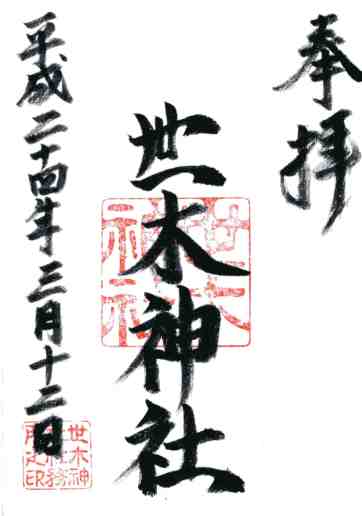 奉拝
世木神社
平成二十四年三月十二日
世木神
社務
所之印